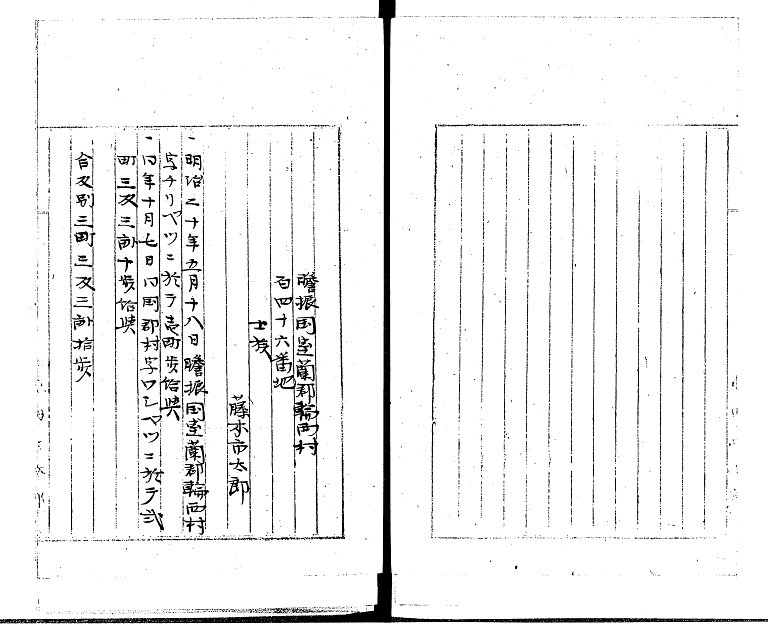 膽振国室蘭郡輪西村
百四十六番地
士族
藤木市太郎
一明治二十年五月十八日膽振国室蘭郡輪西村
字チリヤツニ於テ壱町歩給与
一同年十月七日同国郡村字ワシヤツニ於テ弐
町三反三畝十歩給与
合反別三町三反三畝拾歩